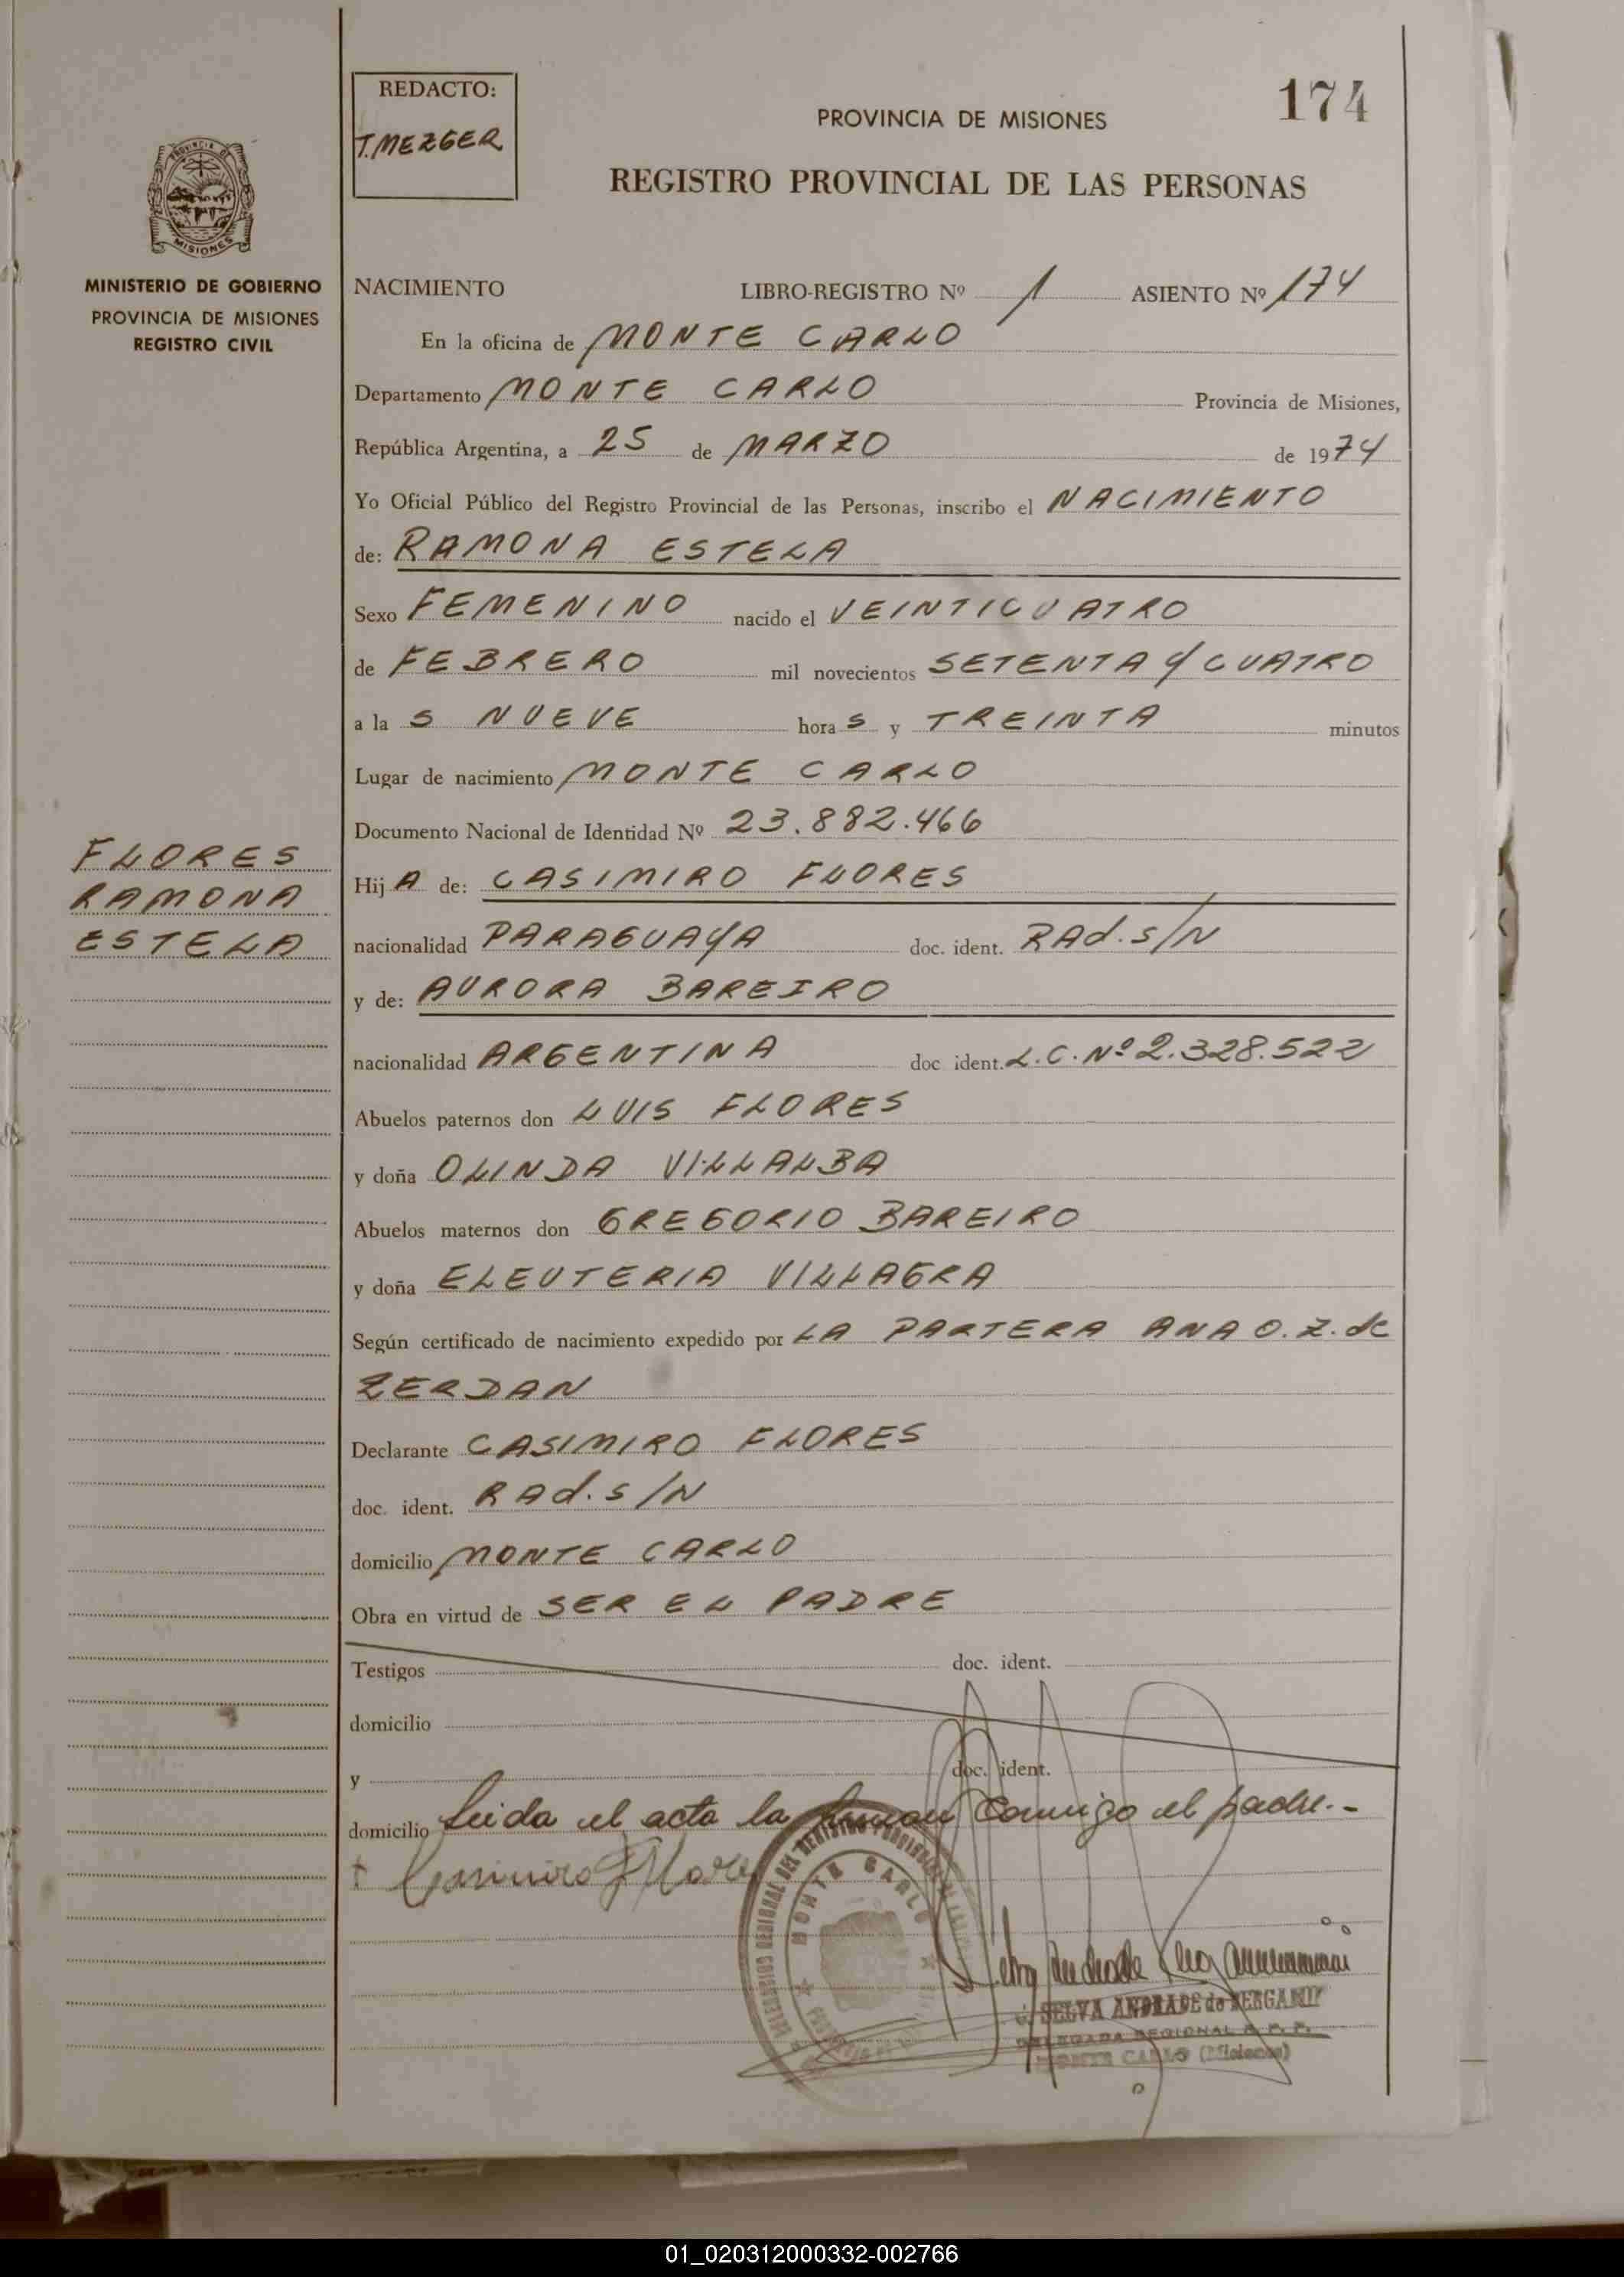 174
REDACTO:
T. MEZGER
PROVINCIA DE MISIONES
REGISTRO PROVINCIAL DE LAS PERSONAS
MISIONES
MINISTERIO DE GOBIERNO
PROVINCIA DE MISIONES
REGISTRO CIVIL
FLORES
RAMONA
ESTELA
NACIMIENTO LIBRO-REGISTRO Nº 1 ASIENTO Nº 174
En la oficina de MONTE CARLO
Departamento MONTE CARLO Provincia de Misiones,
República Argentina, a 25 de MARZO de 1974
Yo Oficial Público del Registro Provincial de las Personas, inscribo el NACIMIENTO
de: RAMONA ESTELA
Sexo FEMENINO nacido el VEINTICUATRO
de FEBRERO mil novecientos SETENTA Y CUATRO
a la S NUEVE hora S y TREINTA minutos
Lugar de nacimiento MONTE CARLO
Documento Nacional de Identidad Nº 23.882.466
Hij A de: CASIMIRO FLORES
nacionalidad PARAGUAYA doc. ident. RAd. S/N
y de: AURORA BAREIRO
nacionalidad ARGENTINA doc ident. L.C. Nº 2.328.522
Abuelos paternos don LUIS FLORES
y doña OLINDA VILLALBA
Abuelos maternos don GREGORIO BAREIRO
y doña ELEUTERIA VILLAGRA
Según certificado de nacimiento expedido por LA PARTERA ANA O. Z. de
ZERDAN
Declarante CASIMIRO FLORES
doc. ident. RAd. S/N
domicilio MONTE CARLO
Obra en virtud de SER EL PADRE
Testigos doc. ident.
domicilio
y doc. ident.
domicilio Leida el acta la firman conmigo el padre.-
Casimiro Flores
MONTE CARLO
SELVA ANDRADE de BERGAMI
DELEGADA REGIONAL R. P. P.
MONTE CARLO (Misiones)
01_020312000332-002766